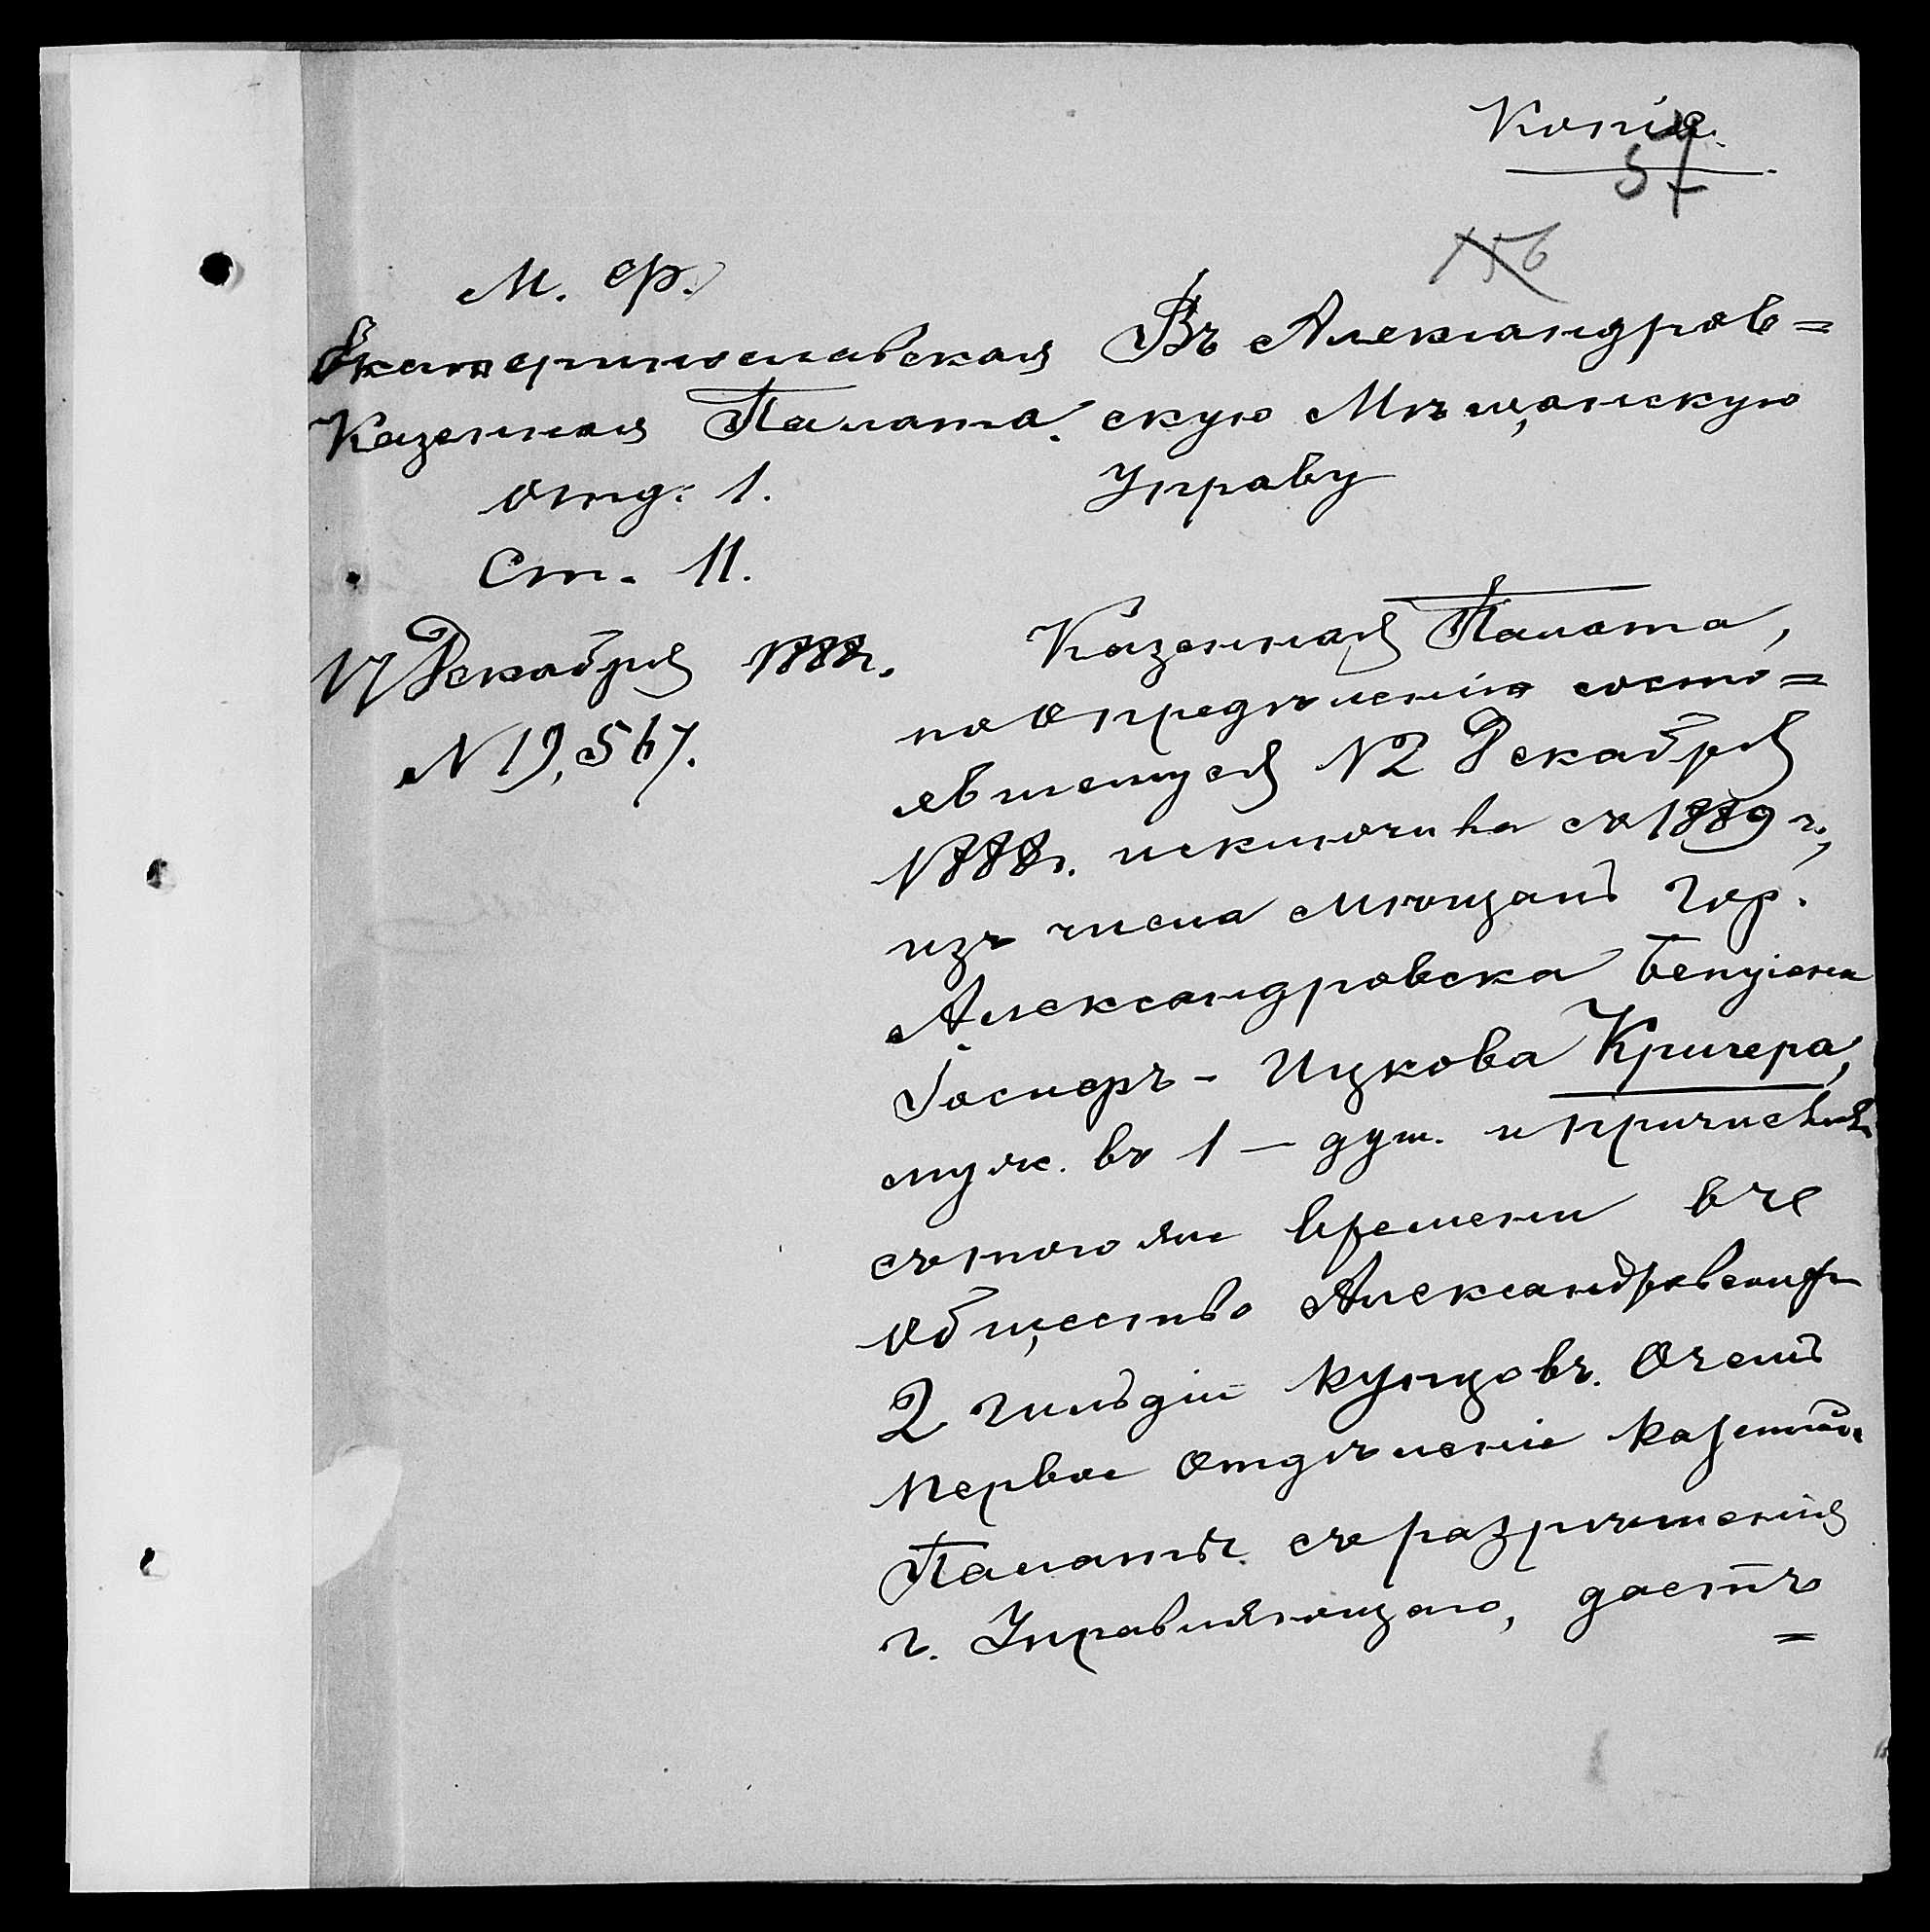 Копія.
57
156
М. Ф.
Екатеринославская
Казенная Палата.
Отд. 1.
Ст. 11.
17 Декабря 1888 г.
№ 19,567.
Въ Александров=
скую Мѣщанскую
Управу
Казенная Палата,
по опредѣленію состо=
явшемуся 12 Декабря
1888 г. исключила съ 1889 г.,
изъ числа мѣщанъ гор.
Александровска
Іосифъ - Ицкова Кричера,
муж. въ 1 - душ. и причисленъ
съ того же времени въ
общество Александровскихъ
2 гильдіи купцовъ. О чемъ
Первое Отдѣленіе Казенной
Палаты съ разрѣшенія
г. Управляющаго, даетъ
=